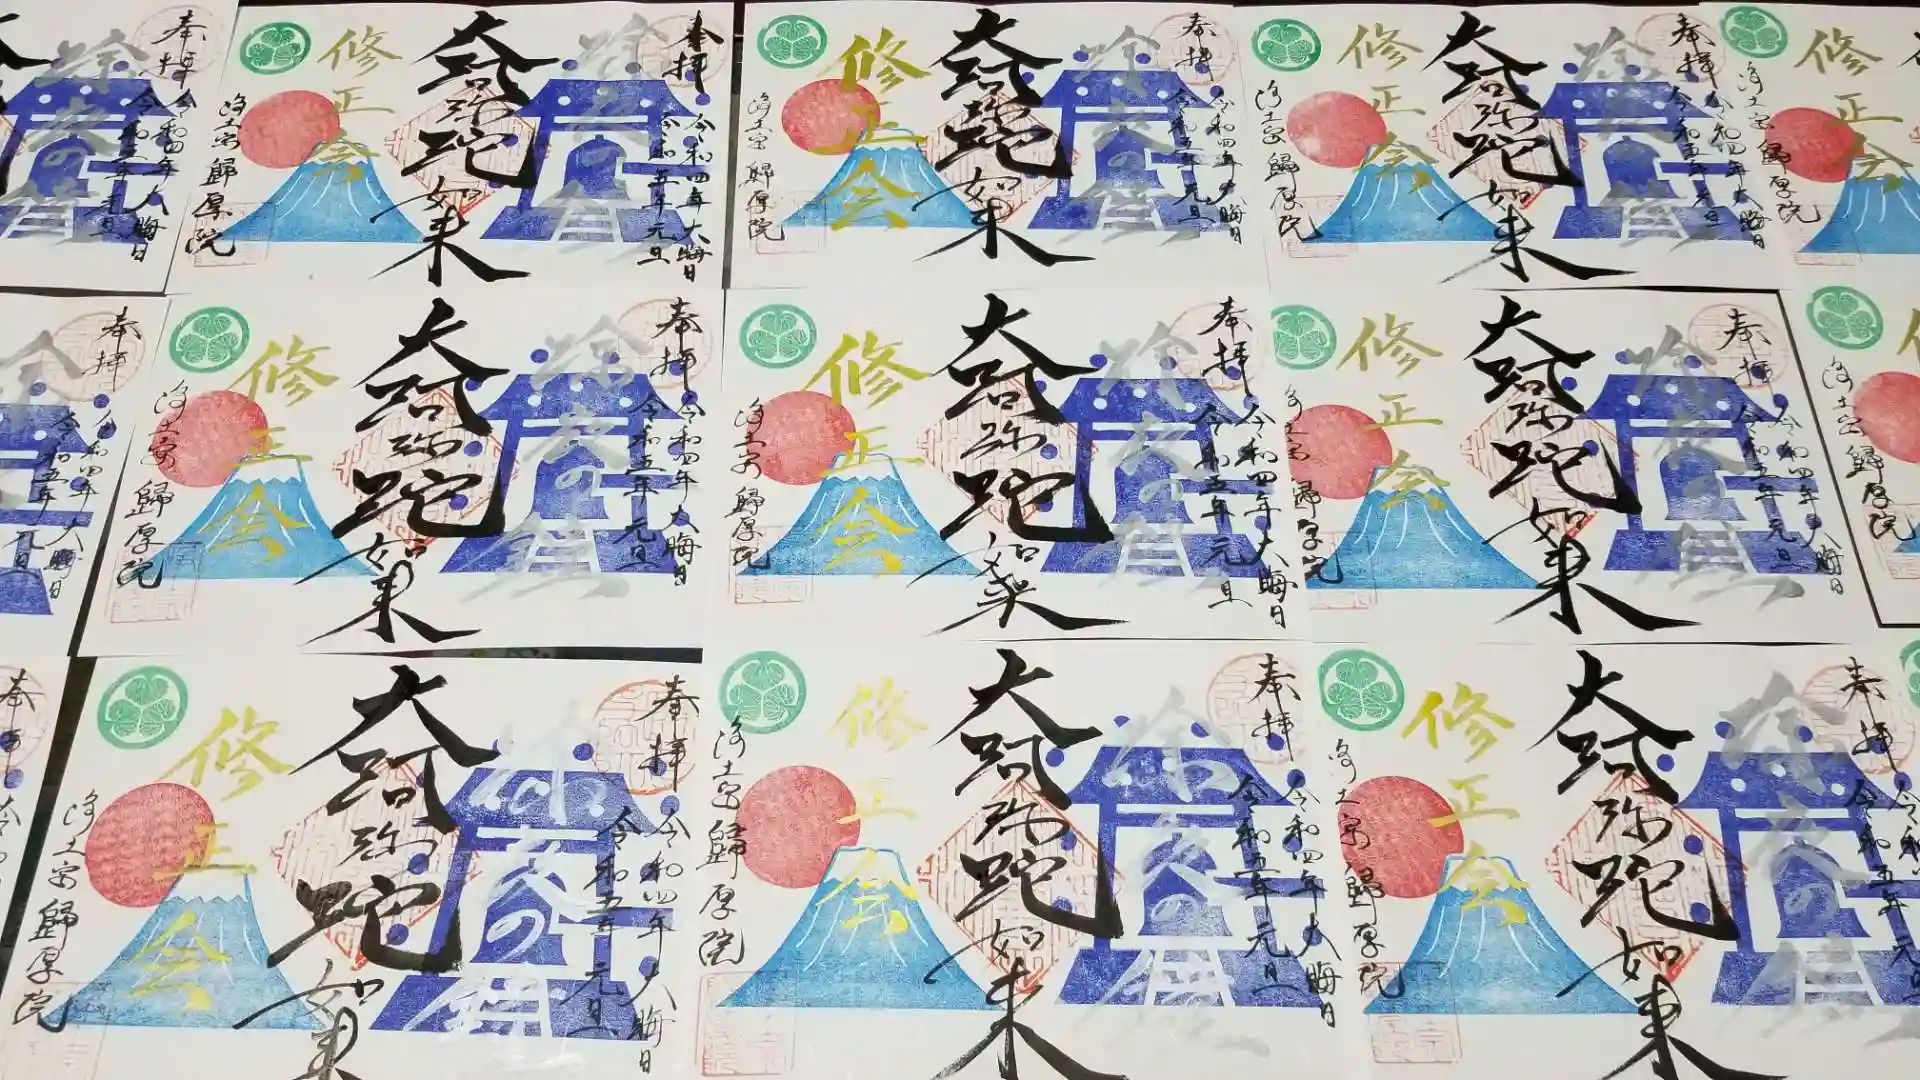 奉拝
令和四年大晦日
令和五年元旦
除夜の鐘
奉拝
令和四年大晦日
令和五年元旦
除夜の鐘
大阿弥陀如来
修正会
浄土宗 歸厚院
奉拝
令和四年大晦日
令和五年元旦
除夜の鐘
大阿弥陀如来
修正会
浄土宗 歸厚院
奉拝
令和四年大晦日
令和五年元旦
除夜の鐘
大阿弥陀如来
修正会
浄土宗 歸厚院
修正会
浄土宗 歸厚院
奉拝
令和四年大晦日
令和五年元旦
奉拝
令和四年大晦日
令和五年元旦
除夜の鐘
大阿弥陀如来
修正会
浄土宗 歸厚院
奉拝
令和四年大晦日
令和五年元旦
除夜の鐘
大阿弥陀如来
修正会
浄土宗 歸厚院
奉拝
令和四年大晦日
令和五年元旦
除夜の鐘
大阿弥陀如来
修正会
浄土宗 歸厚院
浄土宗 歸厚院
奉拝
奉拝
令和四年大晦日
令和五年元旦
除夜の鐘
大阿弥陀如来
修正会
浄土宗 歸厚院
奉拝
令和四年大晦日
令和五年元旦
除夜の鐘
大阿弥陀如来
修正会
浄土宗 歸厚院
奉拝
令和五年元
除夜の鐘
大阿弥陀如来
修正会
浄土宗 歸厚院